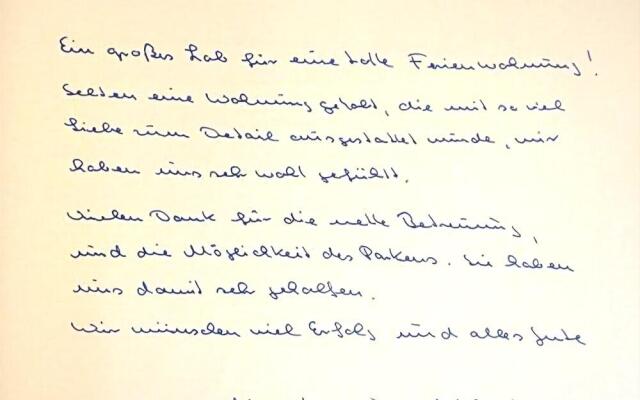 Ein großes Lob für eine tolle Ferienwohnung!
Selten eine Wohnung gehabt, die mit so viel
Liebe zum Detail ausgestattet wurde, wir
haben uns sehr wohl gefühlt.
Vielen Dank für die nette Betreuung,
und die Möglichkeit des Parkens. Sie haben
uns damit sehr geholfen.
Wir wünschen viel Erfolg und alles Gute